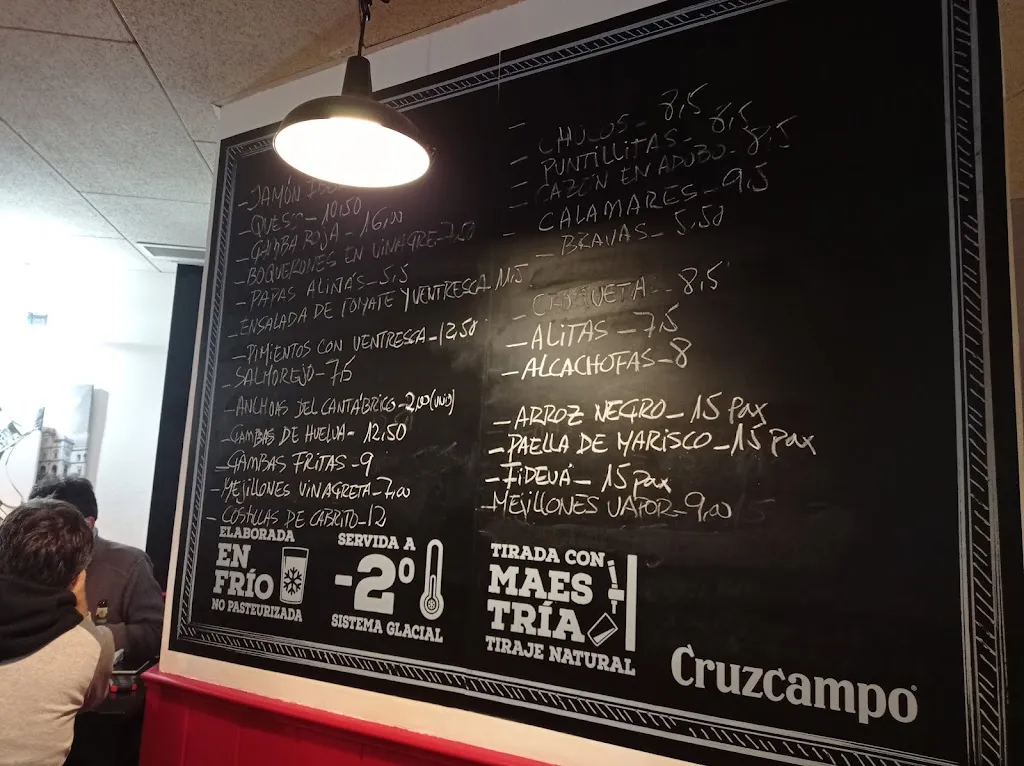 - JAMÓN
- QUESO - 10,50
- GAMBA ROJA - 16,00
- BOQUERONES EN VINAGRE - 7,50
- PAPAS ALIÑÁS - 5,5
- ENSALADA DE TOMATE Y VENTRESCA - 11,5
- PIMIENTOS CON VENTRESCA - 12,50
- SALMOREJO - 7,5
- ANCHOAS DEL CANTÁBRICO - 2,00 (UNID)
- GAMBAS DE HUELVA - 12,50
- GAMBAS FRITAS - 9
- MEJILLONES VINAGRETA - 7,00
- COSTILLAS DE CABRITO - 12
- CHOCOS - 8,5
- PUNTILLITAS - 8,5
- CAZÓN EN ADOBO - 8,5
- CALAMARES - 9,5
- BRAVAS - 5,50
- 8,5
- ALITAS - 7,5
- ALCACHOFAS - 8
- ARROZ NEGRO - 15 pax
- PAELLA DE MARISCO - 15 pax
- FIDEUÁ - 15 pax
- MEJILLONES VAPOR - 9,00
ELABORADA
EN
FRÍO
NO PASTEURIZADA
SERVIDA A
-2º
SISTEMA GLACIAL
TIRADA CON
MAES
TRÍA
TIRAJE NATURAL
Cruzcampo